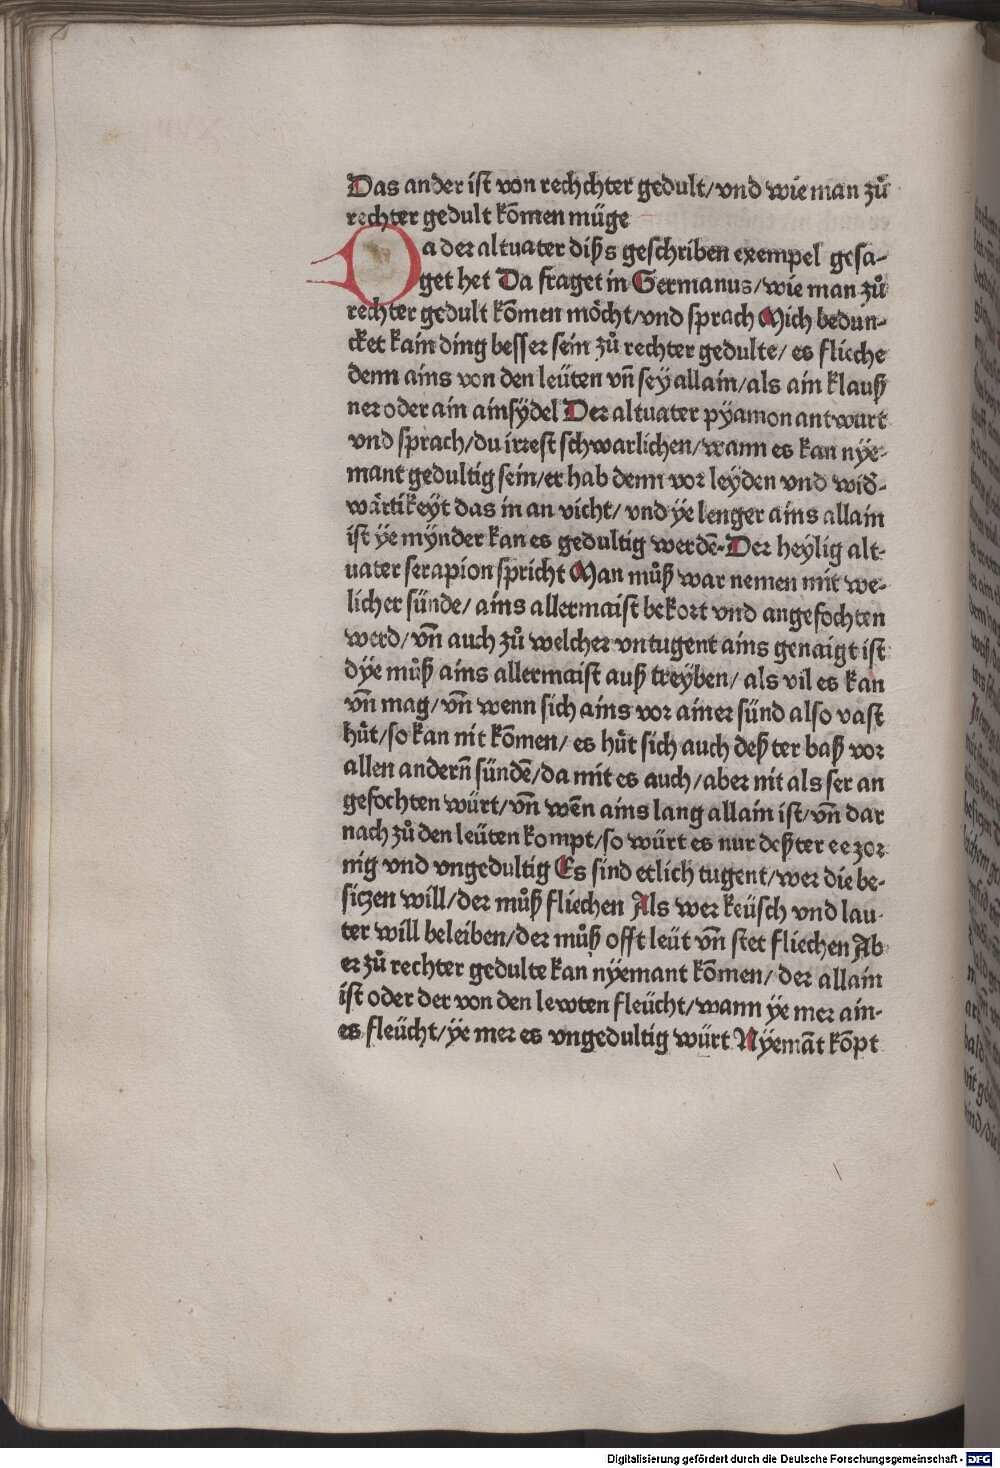 Das ander ist von rechchter gedult/vnd wie man zuͦ
rechter gedult kōmen müge
Da der altuater diß geschriben exempel gesa-
get het Da fraget in Germanus/wie man zuͦ
rechter gedult kōmen möcht/vnd sprach Mich bedun-
cket kain ding besser sein zuͦ rechter gedulte/es flieche
denn ains von den leüten vn̄ seÿ allain/als ain klauß
ner oder ain ainsÿdel Der altuater pÿamon antwurt
vnd sprach/du irrest schwarlichen/wann es kan nÿe-
mant gedultig sein/er hab denn vor leÿden vnd wid-
wärtikeÿt das in an vicht/vnd ÿe lenger ains allain
ist ÿe mÿnder kan es gedultig werdē. Der heÿlig alt-
uater serapion spricht Man muͦß war nemen mit we-
licher sünde/ains allermaist bekort vnd angefochten
werd/vn̄ auch zuͦ welcher vntugent ains genaigt ist
dÿe muͦß ains allermaist auß treÿben/als vil es kan
vn̄ mag/vn̄ wenn sich ains vor ainer sünd also vast
huͤt/so kan nit kōmen/es huͤt sich auch deß ter baß vor
allen andern̄ sündē/da mit es auch/aber nit als ser an
gefochten würt/vn̄ wēn ains lang allain ist/vn̄ dar
nach zuͦ den leüten kompt/so würt es nur deßter ee zor
nig vnd vngedultig Es sind etlich tugent/wer die be-
siczen will/der muͦß fliechen Als wer keüsch vnd lau-
ter will beleiben/der muͦß offt leüt vn̄ stet fliechen Ab
er zuͦ rechter gedulte kan nÿemant kōmen/der allain
ist oder der von den lewten fleücht/wann ÿe mer ain-
es fleücht/ÿe mer es vngedultig würt Nÿemāt kōpt
Digitalisierung gefördert durch die Deutsche Forschungsgemeinschaft - DFG